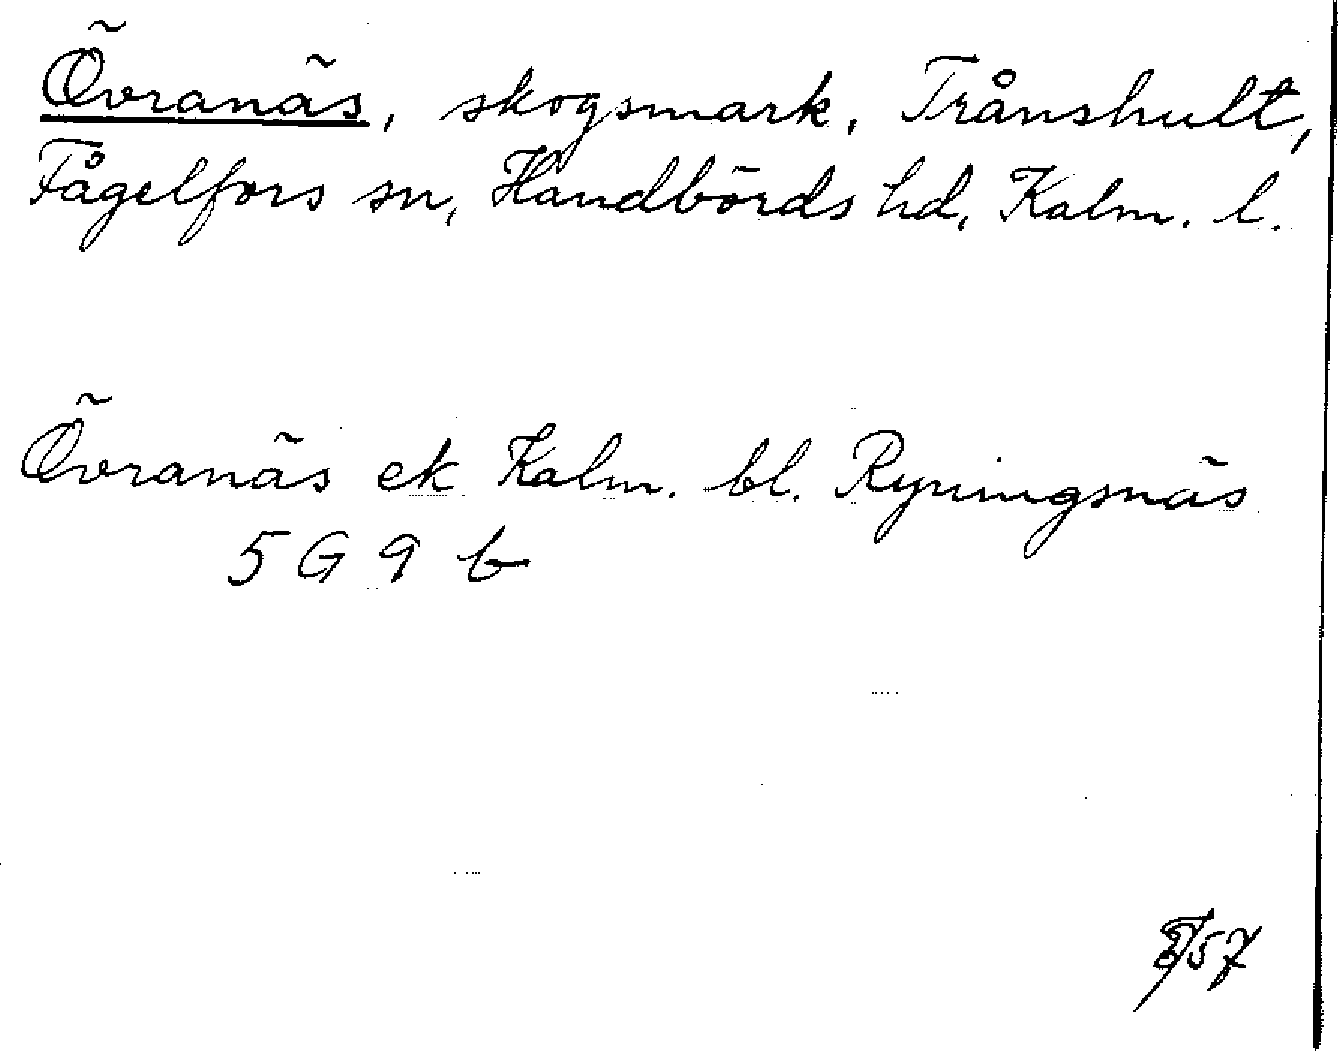 Övranäs, skogsmark, Trånshult,
Fågelfors sn, Handbörds hd, Kalm. l.
Övranäs ek Kalm. bl. Ryningsnäs
5 G 9 b
57